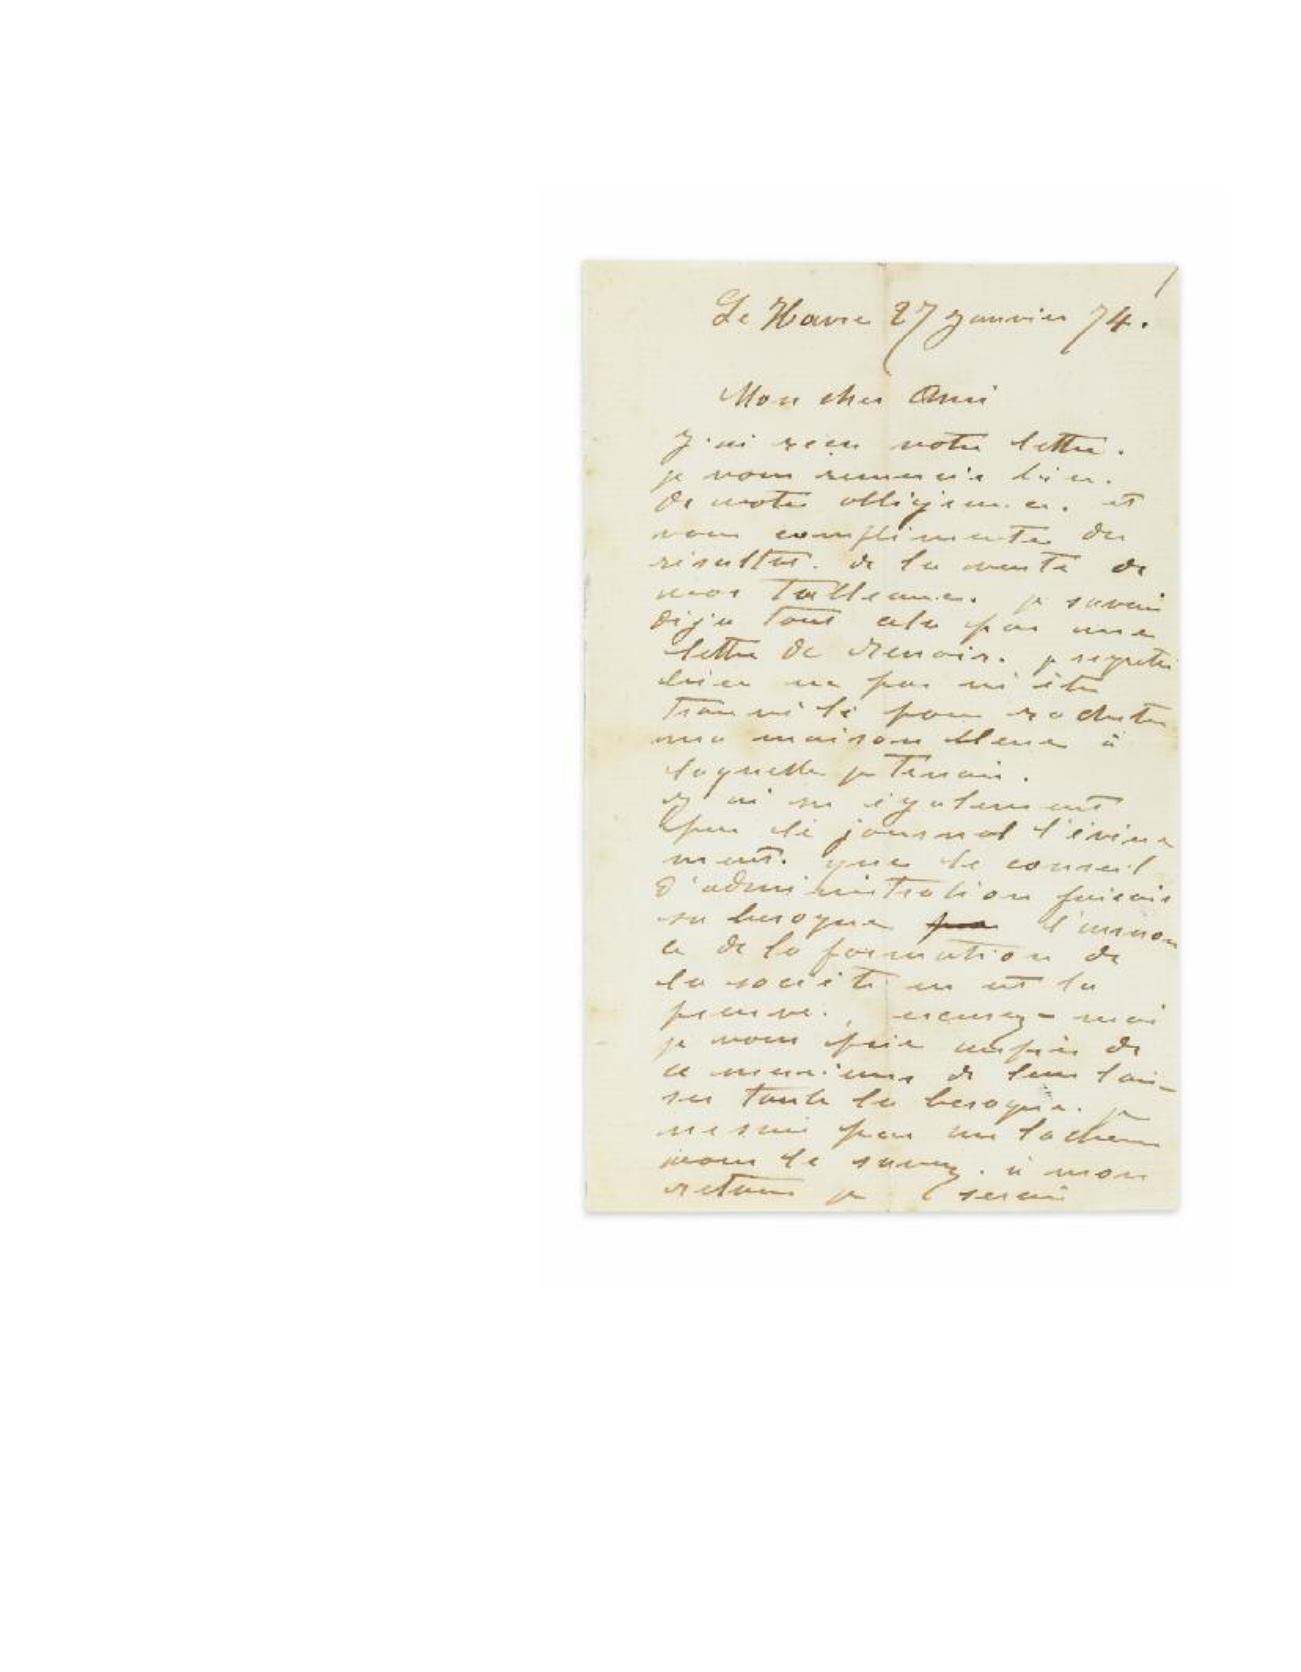 Le Havre 27 janvier 74.
Mon cher Ami
J'ai reçu votre lettre.
je vous remercie bien.
de votre obligence. et
vous complimente du
résultat. de la vente de
nos Tableaux. je savais
déja tout cela par une
lettre de Renoir. je regrette
bien ne pas m'être
trouvé là pour racheter
ma maison bleue à
laquelle je tenais.
J'ai su également
par le journal l'évène
ment. que le conseil
d'administration faisait
sa besogne l'annon
ce de la formation de
la société en est la
preuve. excusez-moi
je vous prie auprès de
ces messieurs de leur lais-
ser toute la besogne. je
ne suis pas un lacheur
vous le savez. à mon
retour je serai